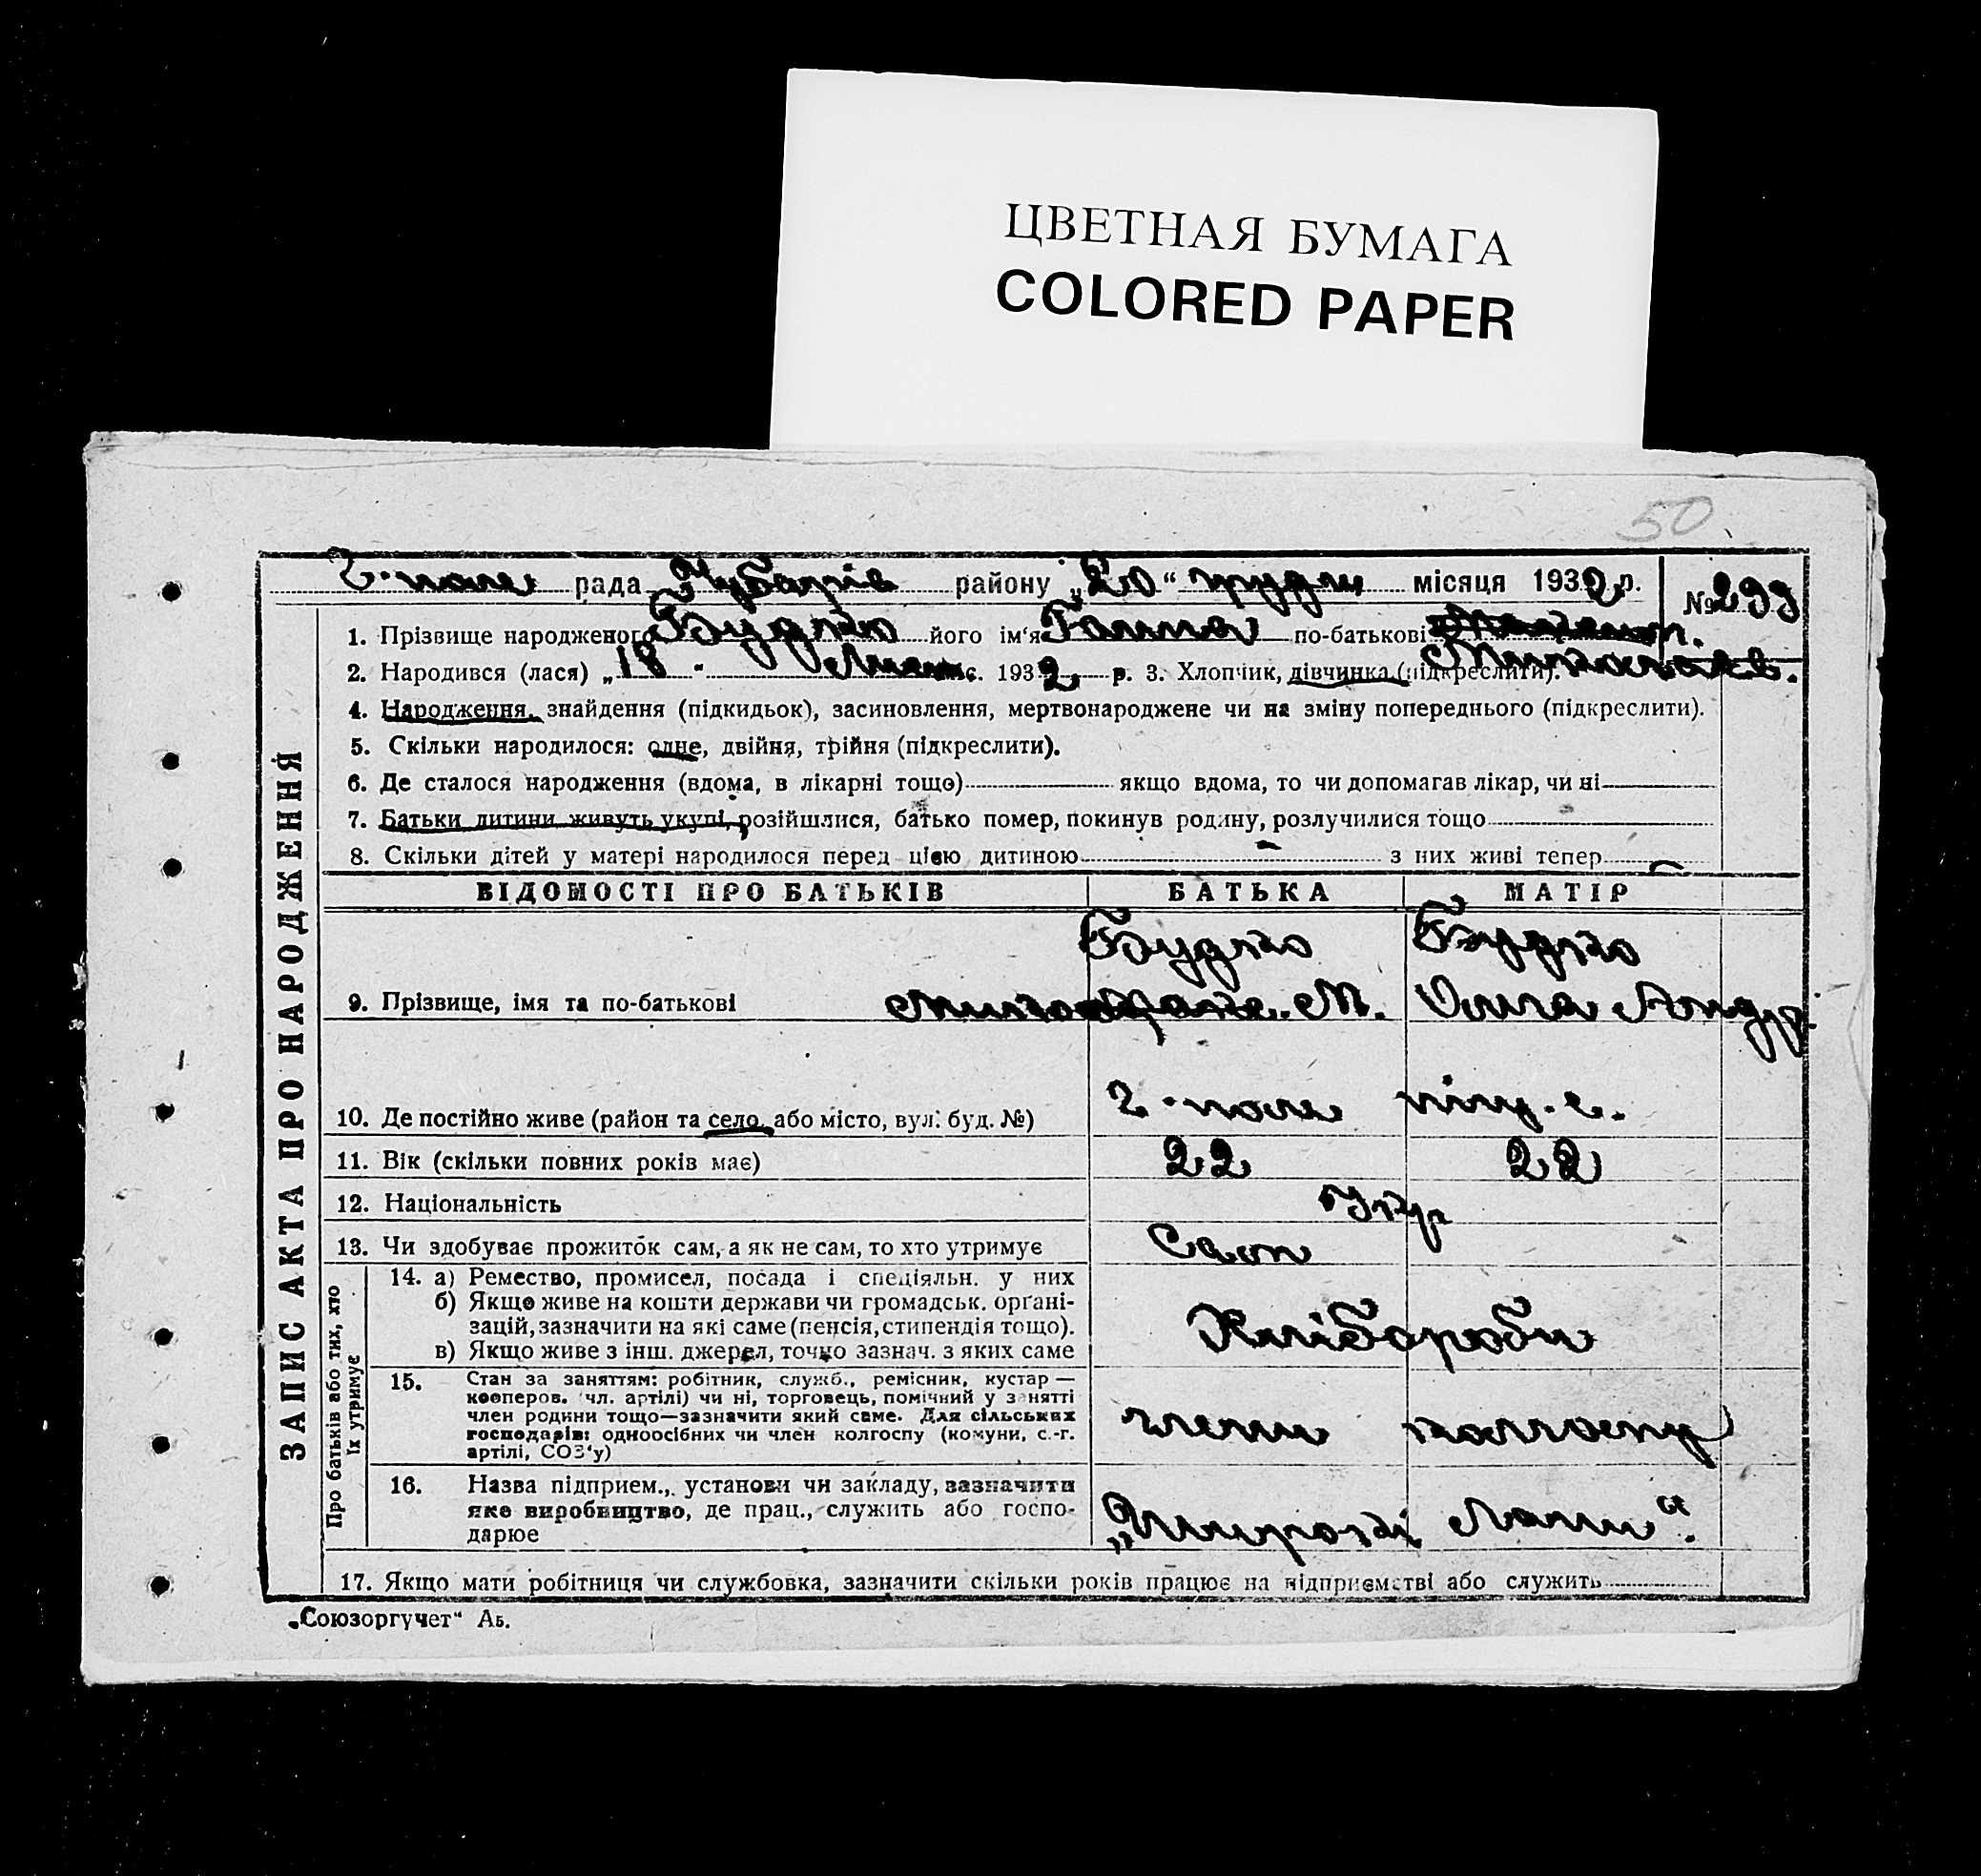 ЦВЕТНАЯ БУМАГА
COLORED PAPER
50
Г-поле рада Чубарів району „20“ грудн місяця 1932 р. № 299
1. Прізвище народженого Будко його ім'я Ганна по-батькові
2. Народився (лася) „18 “ Лист с. 1932 р. 3. Хлопчик, дівчинка (підкреслити). Миколаєв.
4. Народження, знайдення (підкидьок), засиновлення, мертвонароджене чи на зміну попереднього (підкреслити).
5. Скільки народилося: одне, двійня, трійня (підкреслити).
6. Де сталося народження (вдома, в лікарні тощо) якщо вдома, то чи допомагав лікар, чи ні
7. Батьки дитини живуть укупі, розійшлися, батько помер, покинув родину, розлучилися тощо
8. Скільки дітей у матері народилося перед цією дитиною - з них живі тепер -
ЗАПИС АКТА ПРО НАРОДЖЕННЯ
ВІДОМОСТІ ПРО БАТЬКІВ БАТЬКА МАТІР
Будко Будко
9. Прізвище, імя та по-батькові М. Анна Андр.
10. Де постійно живе (район та село, або місто, вул. буд. №) Г-поле
11. Вік (скільки повних років має) 22 22
12. Національність Укр
13. Чи здобуває прожиток сам, а як не сам, то хто утримує Сам
Про батьків або тих, хто їх утримує
14. а) Ремество, промисел, посада і спеціяльн. у них
б) Якщо живе на кошти держави чи громадськ. орґані-
зацій, зазначити на які саме (пенсія, стипендія тощо).
в) Якщо живе з інш. джерел, точно зазнач. з яких саме
Хлібороби
15. Стан за заняттям: робітник, служб., ремісник, кустар —
кооперов. чл. артілі) чи ні, торговець, помічний у занятті
член родини тощо—зазначити який саме. Для сільських
господарів: одноосібних чи член колгоспу (комуни, с.-г.
артілі, СОЗ'у)
члени колгоспу
16. Назва підприєм., установи чи закладу, зазначити
яке виробництво, де прац., служить або госпо-
дарюе
„Широкі Лани“.
17. Якщо мати робітниця чи службовка, зазначити скільки років працює на підприємстві або служить
„Союзоргучет“ Аь.